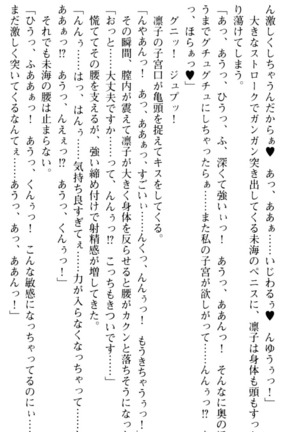 ん激しくしちゃうんだからぁ♥　あっ、ああぁ……いじわるぅ♥　んゆうぅっ！
　大きなストロークでガンガン突き出してくる未海のペニスに、凛子は身体も頭もすっか
り蕩けてしまう。
「あっ、あうっ、ひうっ、ふ、深くて強いぃっ！　あうっ、ああんっ！　そんなに奥のほ
うまでグチュグチュにしちゃったらぁ……また私の子宮が欲しがって……んんぅっ!?　あ
っ、ほらぁっ♥」
　グニッ！　ジュプッ！
　凛子の子宮口が亀頭を捉えてキスをしてくる。
「んやあんっ！　あっ、あああっ、すごいぃ……んくっ、んんぅっ！　もうきちゃうぅっ！」
　その瞬間、膣内が震えて凛子が大きく身体を反らせると腰がカクンと落ちそうになった。
「おっと……大丈夫ですか……って、んんぅっ!?　こっちもきついです……」
　慌ててその腰を支えるが、強い締め付けで射精感が増してきた。
「んんっ、はっ、はんっ……気持ち良すぎてぇ……力が入らなくなっちゃって……
ああぁっ!?　あうっ、んえぇっ!?　あうっ、くんぅっ！」
　それでも未海の腰は止まらない。
「ひうっ、ふあああぁっ！　あうっ、くんぅっ！　こんな敏感になっちゃってるのにぃ……
まだ激しく突いてくるなんてぇ……あうっ、あっ、あああんぅっ！」